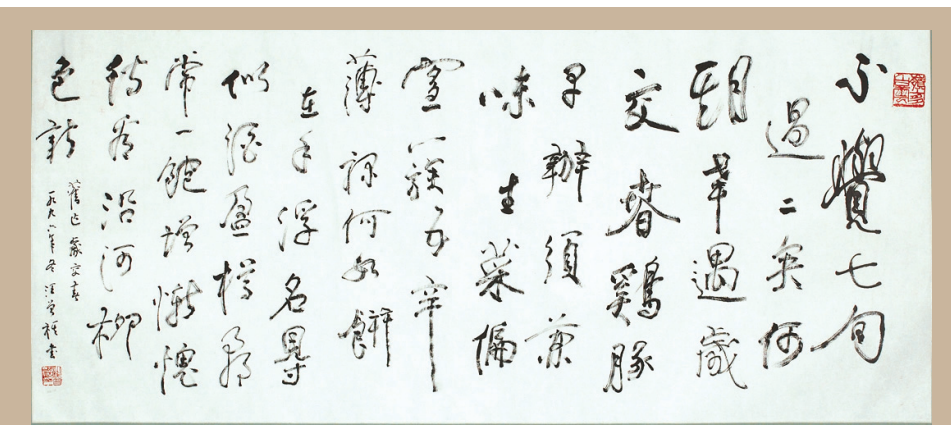 不覺七旬
過二矣何
期幸遇歲
交春鷄豚
早辦須兼
味生菜偏
宜簇五辛
薄祿何如餅
在手浮名得
似酒盈樽尋
常一飽增慚愧
待看沿河柳
色新
舊作歲交春
一九九六年冬汪曾祺書